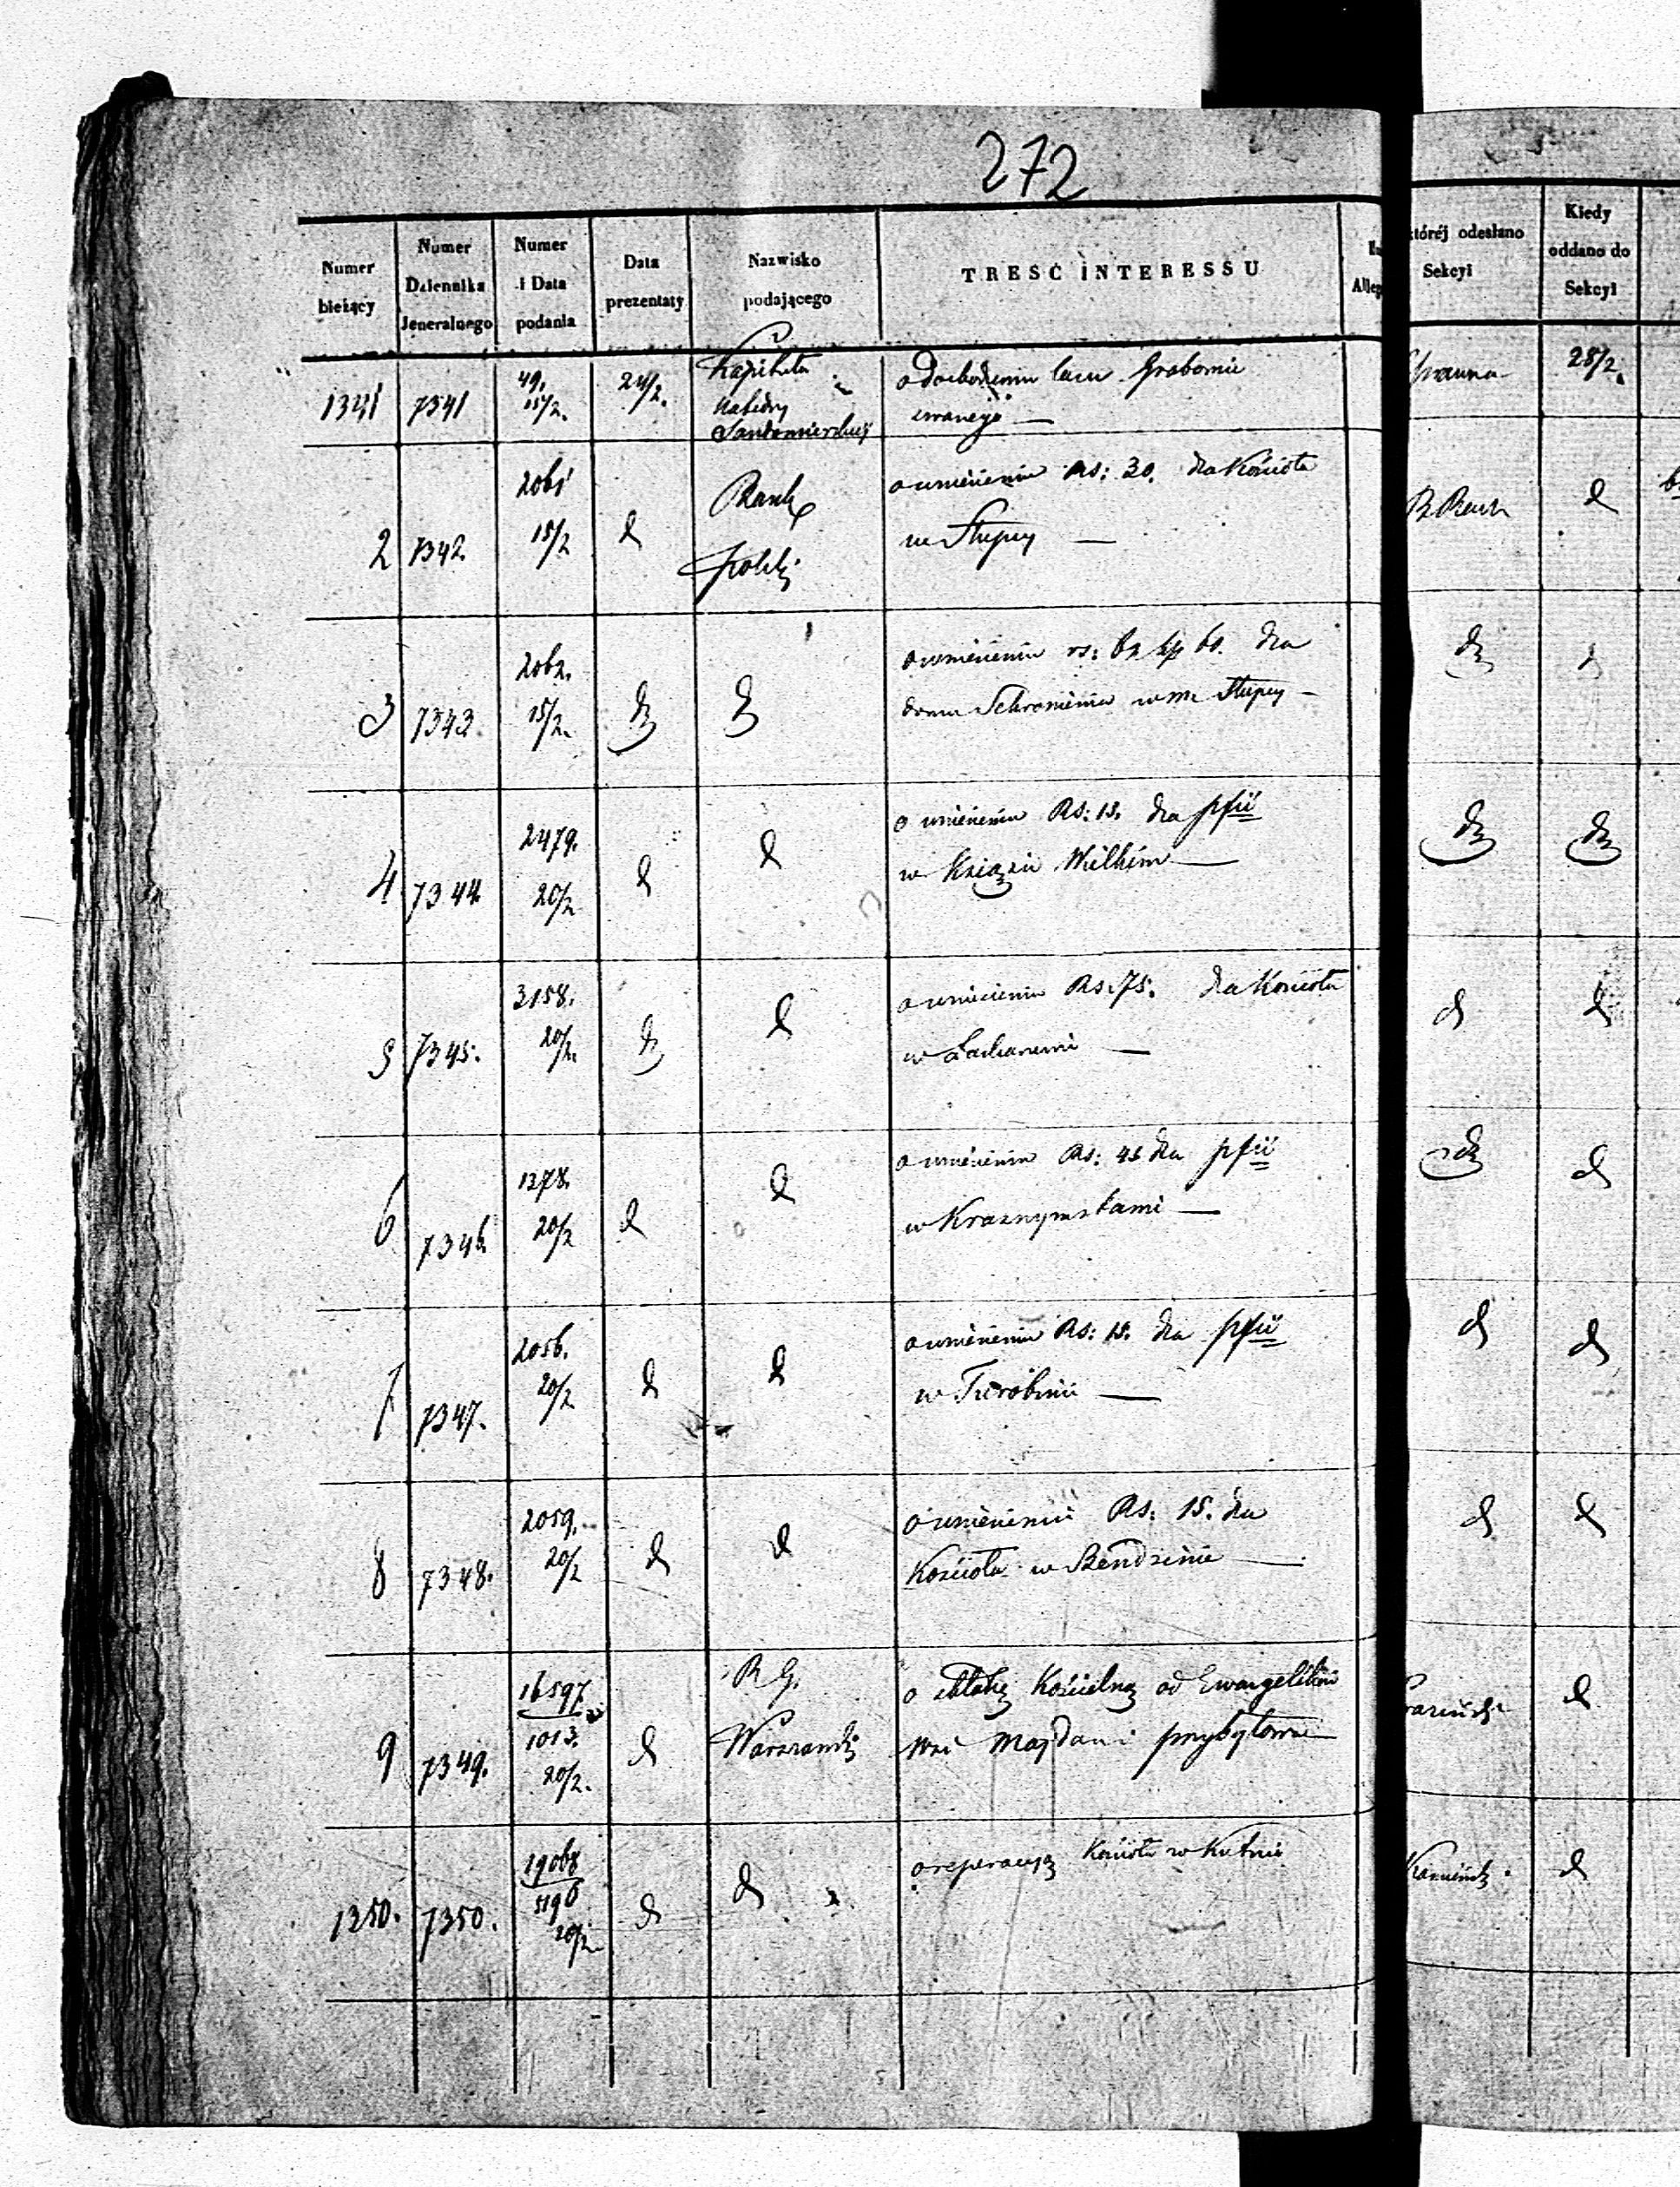 272
Numer bieżący
Numer Dziennika Jeneralnego
Numer i Data podania
Data prezentaty
Nazwisko podającego
TRESĆ INTERESSU
której odesłano Sekcyi
Kiedy oddano do Sekcyi
1341 7341 49. 15/2. 24/2. Kapituła Katedry Sandomierskiej
o dochodzeniu lasu Grabowie
zwanego —
28/2.
2 7342 2061 15/2 d Bank Polski
o wniesieniu Rs: 30. dla Kościoła
we Słupcy —
d
3 7343 2062. 15/2. do
o wniesieniu rs: 62 kp 60. dla
domu Schronienia w m. Słupcy —
4 7344 2479. 20/2 d d
o wniesieniu Rs: 15. dla pfii
w Książu Wielkim —
5 7345. 3158. 20/2. d
o wniesieniu Rs: 75. dla Kościoła
w
6 7346. 1378. 20/2 d d
o wniesieniu Rs: 45 dla pfii
w Krasnymstawie —
7 7347. 2056. 20/2 d d
o wniesieniu Rs: 15. dla pfii
w Turobinie —
8 7348. 2059. 20/2 d d
o wniesieniu Rs: 15. dla
Kościoła w Bendzinie —
9 7349. 16597 1013. 20/2. d R G. Warszawski
o składkę Kościelną od Ewangelików
wsi Majdan i
d
1350. 7350. 19068 5196 20/2 d d
o reperacyą Kościoła w Kutnie
d